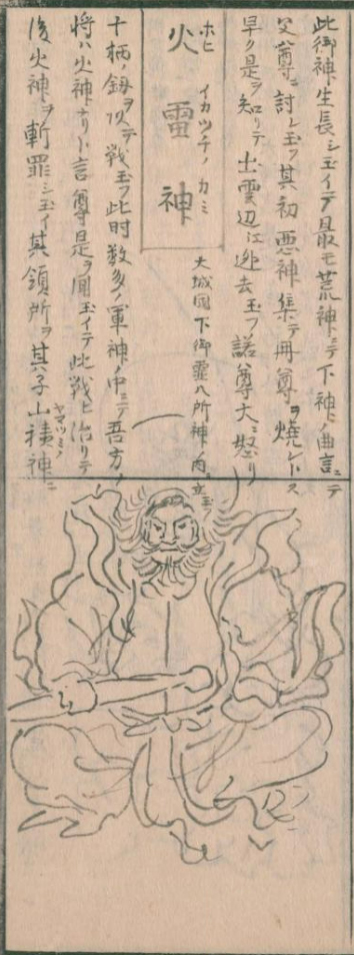 此御神生長シ玉イテ最モ荒神ニテ下神ト曲言ニテ
父尊ニ討レ玉フ其初悪神集テ冊尊ヲ焼レトス
早ク是ヲ知リテ出雲辺江逃去玉フ諾尊大ニ怒リ
火雷神
ホヒ イカツチノ カミ
大城國下御霊八所神ノ内ニ玉
十柄ノ釼ヲ以テ戦玉フ此时数多ノ軍神ノ中ニテ吾方ノ
将ハ火神ナリト言尊是ヲ聞玉イテ此戦ヒ治リテ
後火神ヲ斬罪シ玉イ其領所ヲ其子山積神ニ
ヤマツミノ